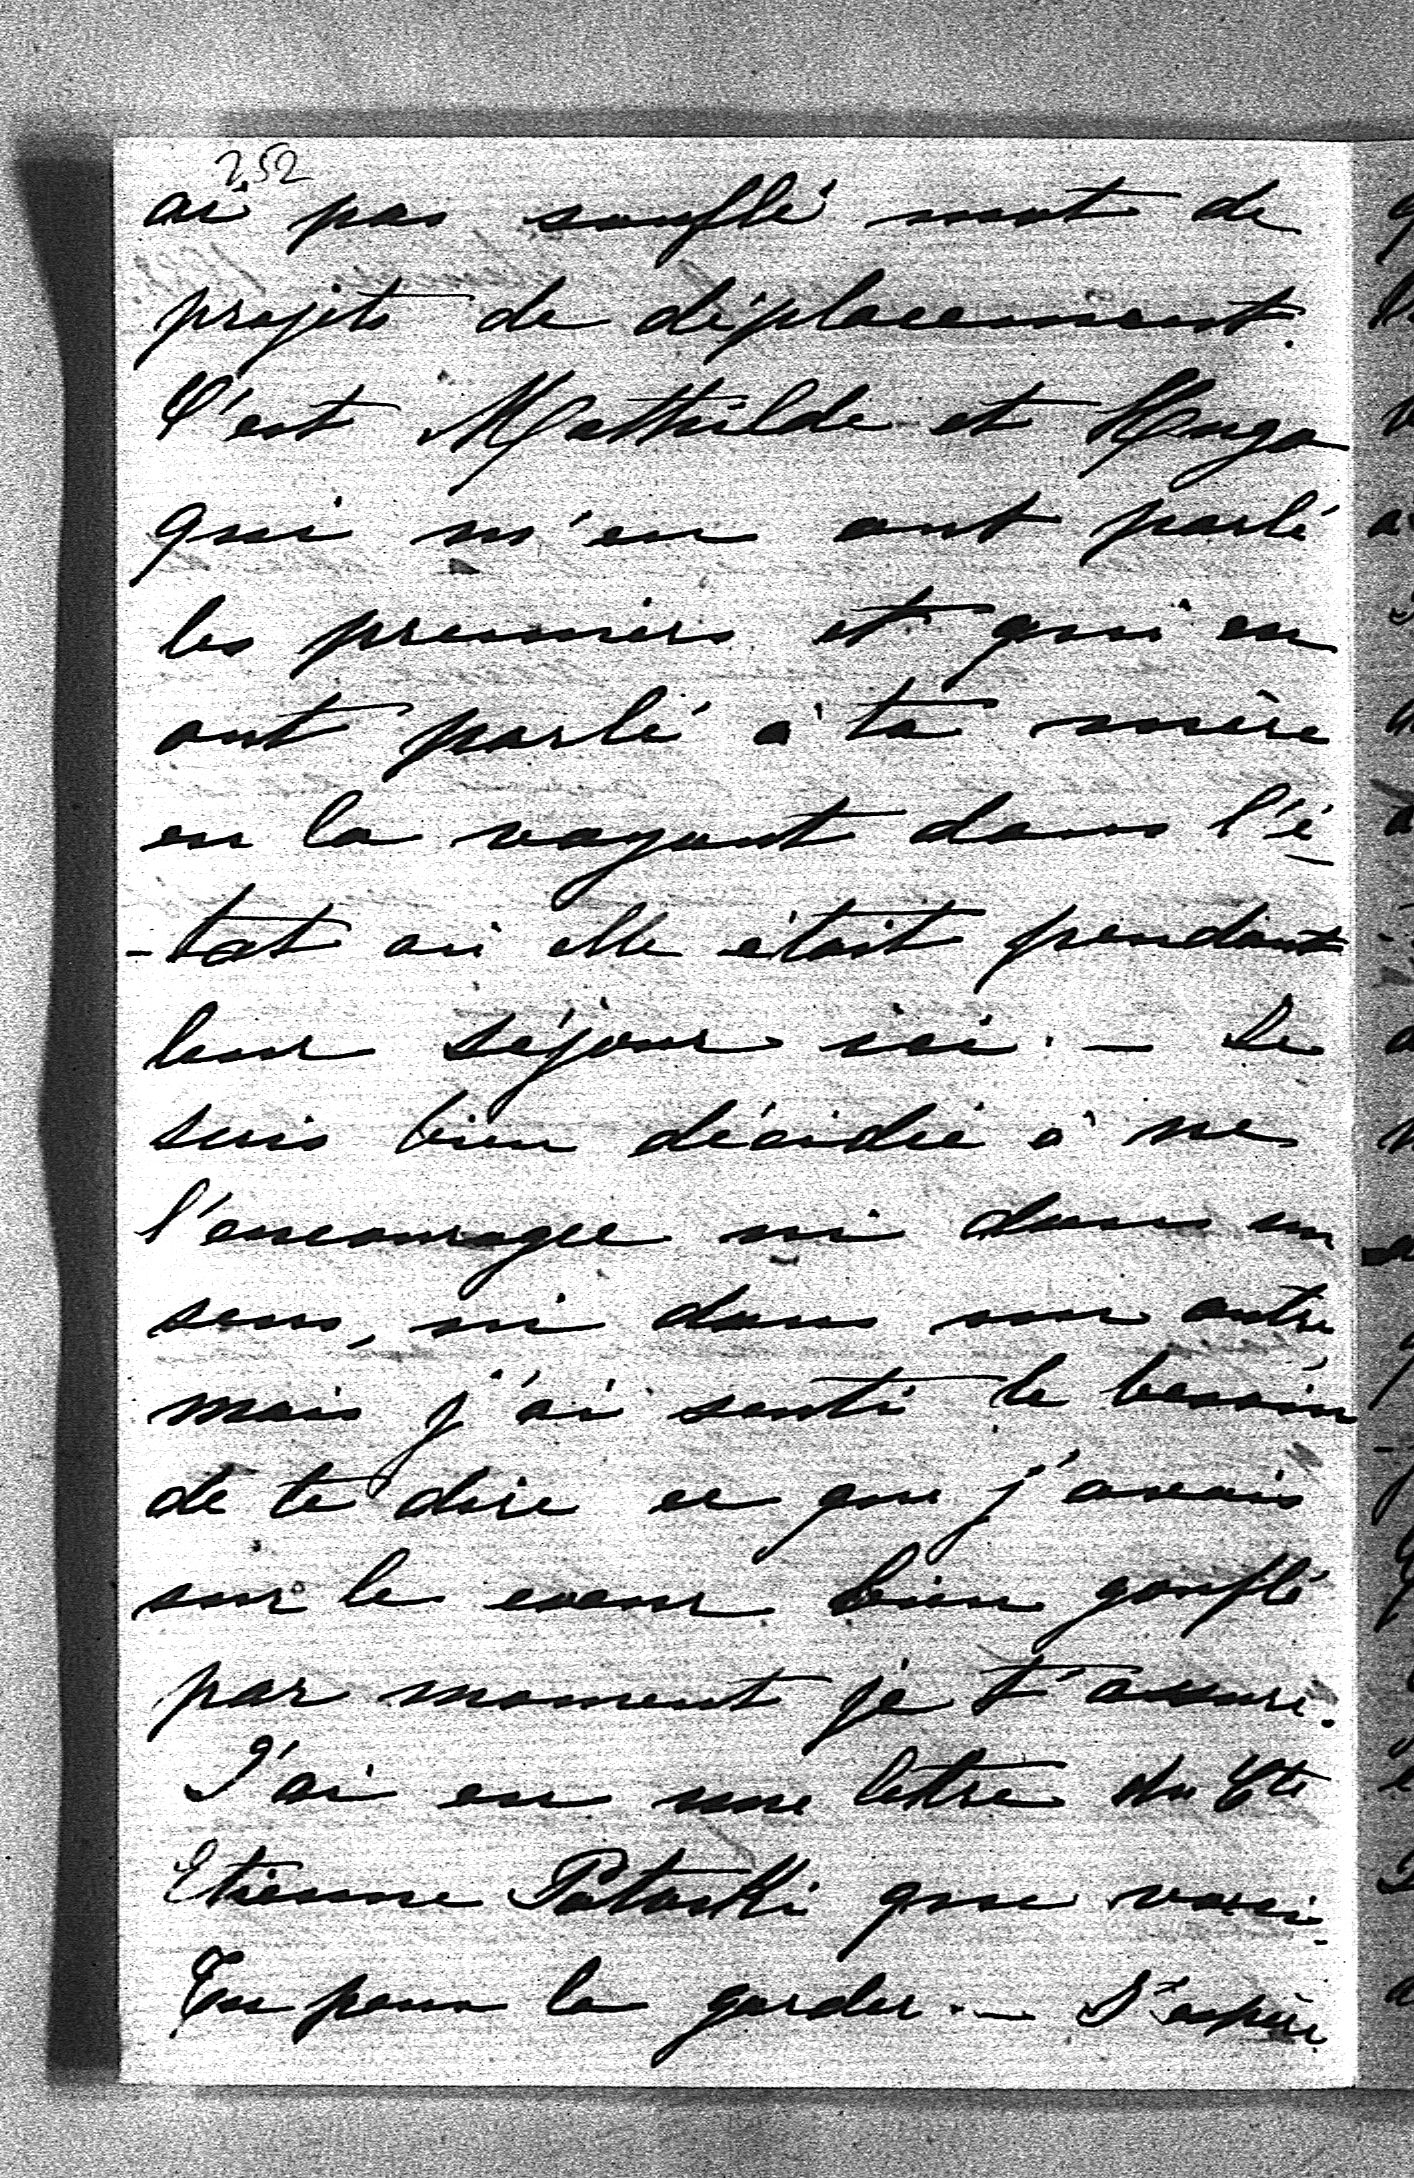 252
ai pas soufflé mot de
projets de déplacement.
C'est Mathilde et Hugo
qui m'en ont parlé
les premiers et qui en
ont parlé à ta mère
en la voyant dans l'é-
-tat où elle était pendant
leur séjour ici. — Je
suis bien décidée à ne
l'encourager ni dans un
sens, ni dans un autre
mais j'ai senti le besoin
de te dire ce que j'avais
sur le coeur bien gonflé
par moment je t'assure.
J'ai eu une lettre du Cte
Etienne Potocki que voici.
Tu peux la garder. — J'espère